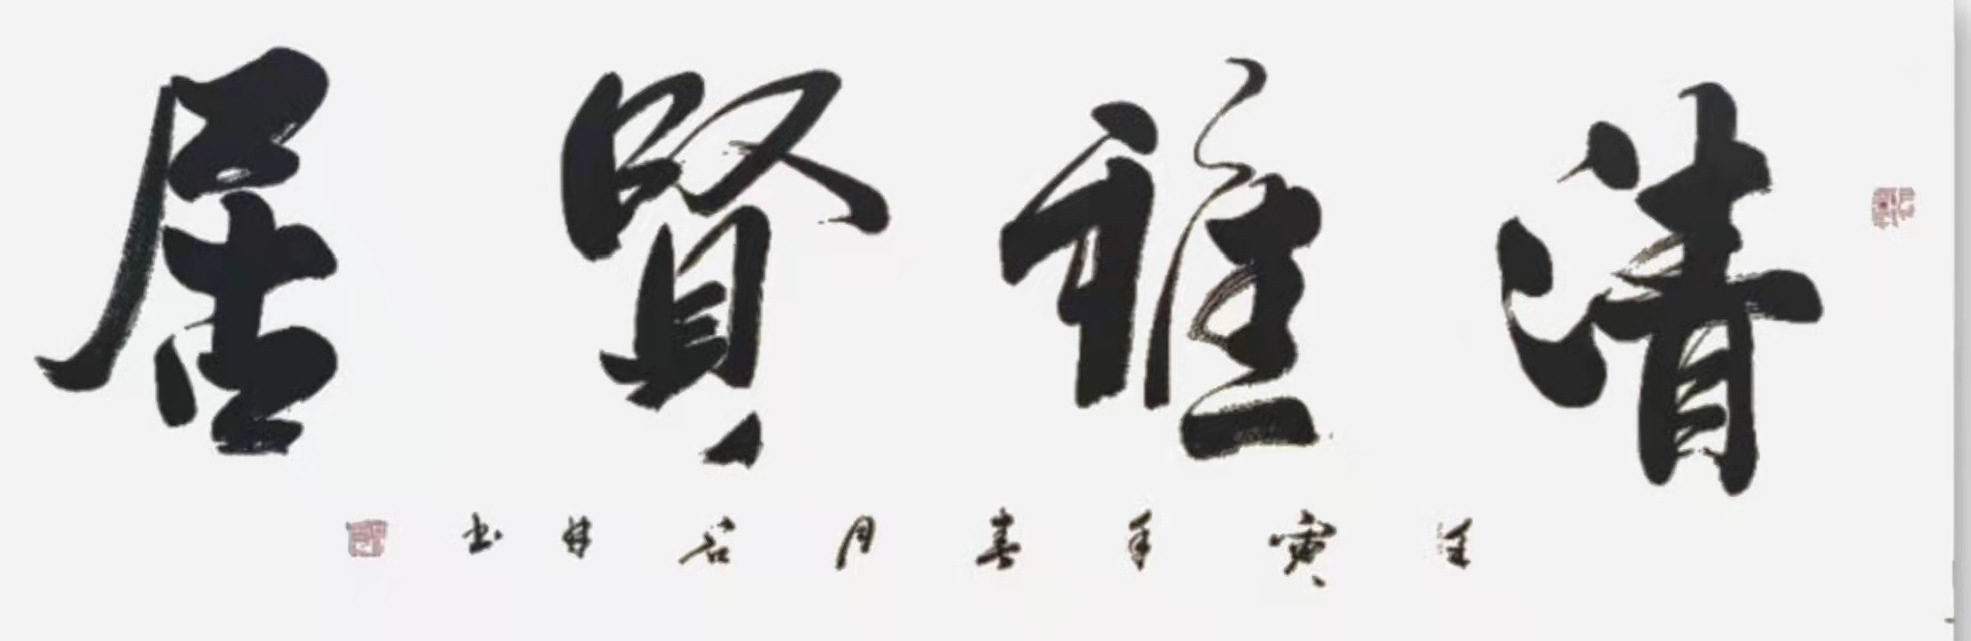 清雅賢居
壬寅年春月石林书